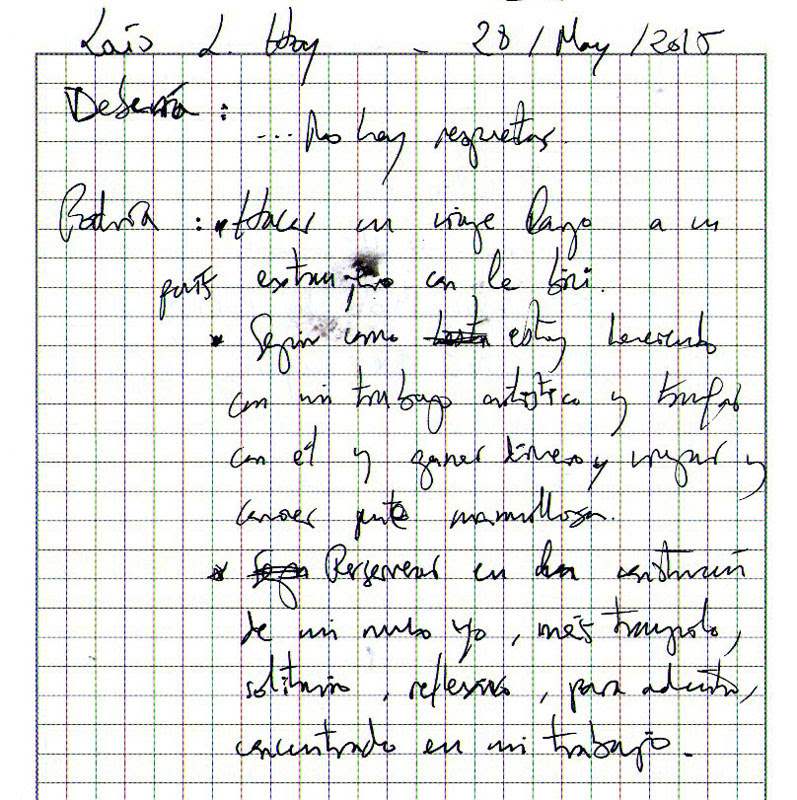 L. 28 / May / 2015
Debería :
... No hay respuetas.
Podría : • Hacer un viaje largo a un
país extranjero con la bici.
• Seguir como estoy haciendo
con mi trabajo artístico y
con él y ganar dinero y viajar y
conocer gente maravillosa.
• Perseverar en la construcción
de mi nuevo yo, más tranquilo,
solitario, reflexivo, para adentro,
concentrado en mi trabajo.